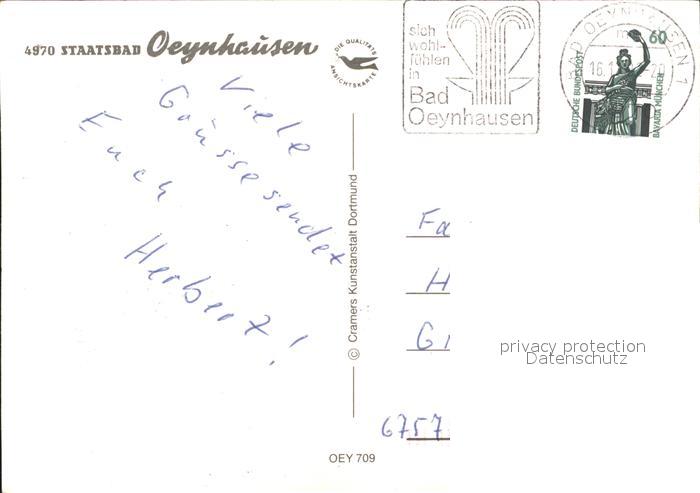 4970 STAATSBAD Oeynhausen
DIE QUALITÄTS
ANSICHTSKARTE
sich
wohl-
fühlen
in
Bad
Oeynhausen
BAD OEYNHAUSEN 1
16.1
60
DEUTSCHE BUNDESPOST
BAVARIA MÜNCHEN
Viele
Grüsse sendet
Euch
Herbert!
© Cramers Kunstanstalt Dortmund
Fa
H
G
privacy protection
Datenschutz
6757
OEY 709